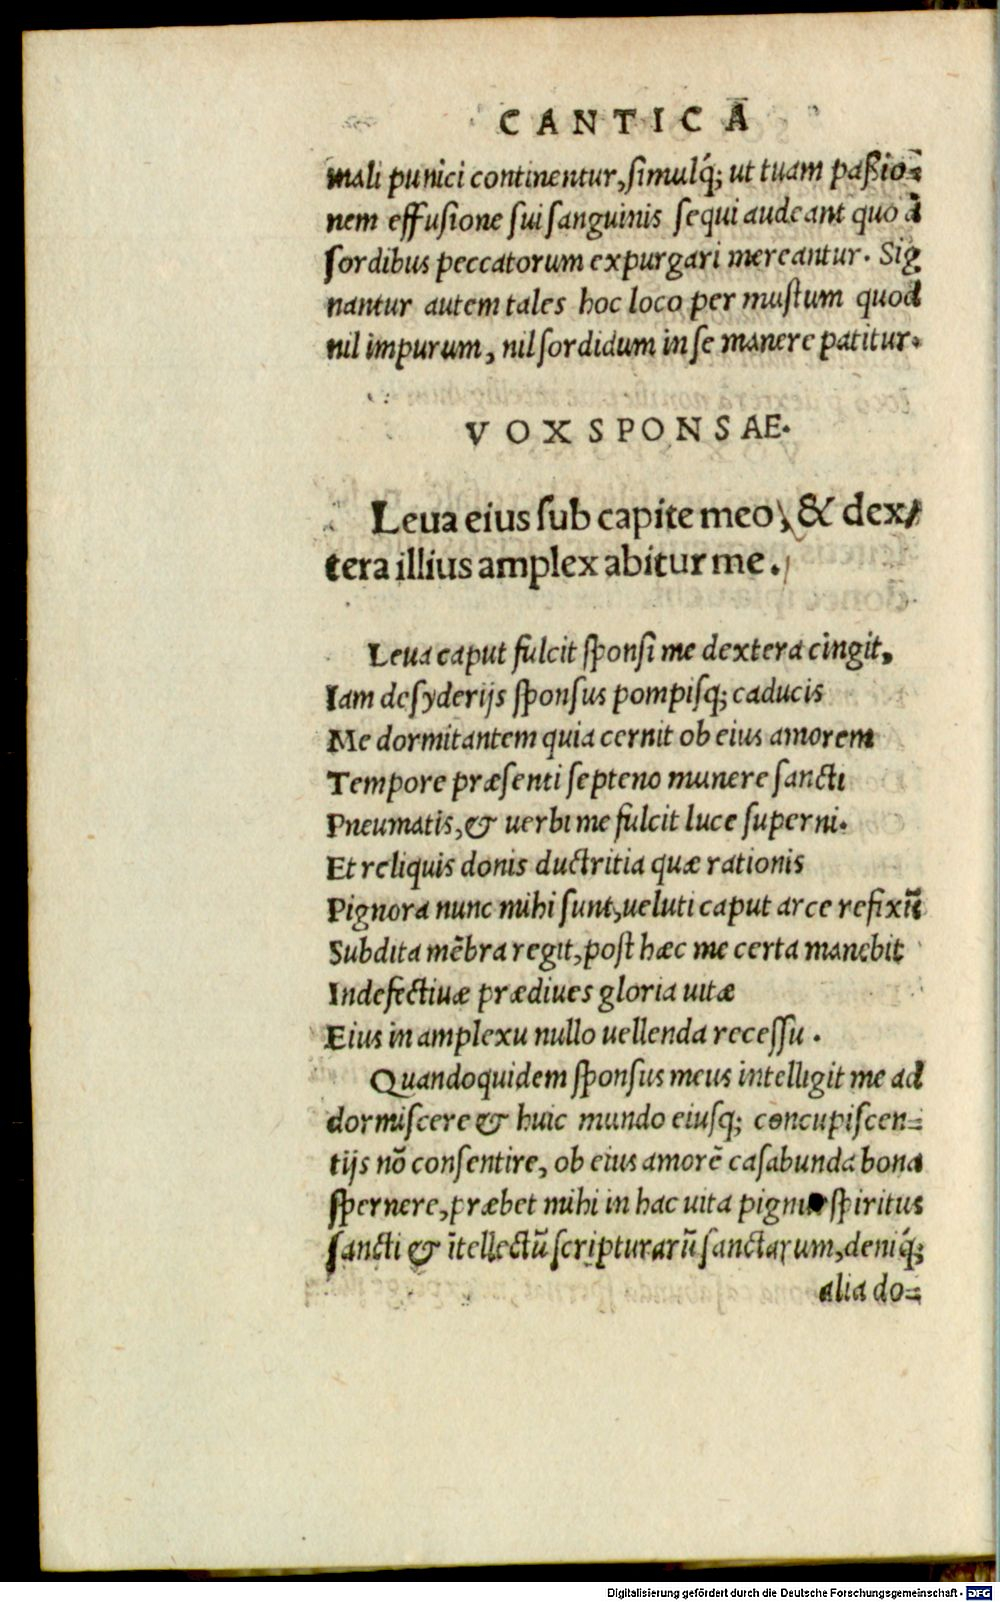 CANTICA
mali punici continentur, simulq́; ut tuam paßio=
nem effusione sui sanguinis sequi audeant quo à
sordibus peccatorum expurgari mereantur. Sig
nantur autem tales hoc loco per mustum quod
nil impurum, nil sordidum in se manere patitur.
VOX SPONSAE.
Leua eius sub capite meo, & dex/
tera illius amplexabitur me.
Leua caput fulcit sponsi me dextera cingit,
Iam desyderijs sponsus pompisq; caducis
Me dormitantem quia cernit ob eius amorem
Tempore præsenti septeno munere sancti
Pneumatis, & uerbi me fulcit luce superni.
Et reliquis donis ductritia quæ rationis
Pignora nunc mihi sunt, ueluti caput arce refixũ
Subdita mẽbra regit, post hæc me certa manebit
Indefectiuæ prædiues gloria uitæ
Eius in amplexu nullo uellenda recessu.
Quandoquidem sponsus meus intelligit me ad
dormiscere & huic mundo eiusq; concupiscen=
tijs nõ consentire, ob eius amorẽ casabunda bona
spernere, præbet mihi in hac uita spiritus
sancti & ĩtellectũ scripturarũ sanctarum, deniq́;
alia do=
Digitalisierung gefördert durch die Deutsche Forschungsgemeinschaft - DFG